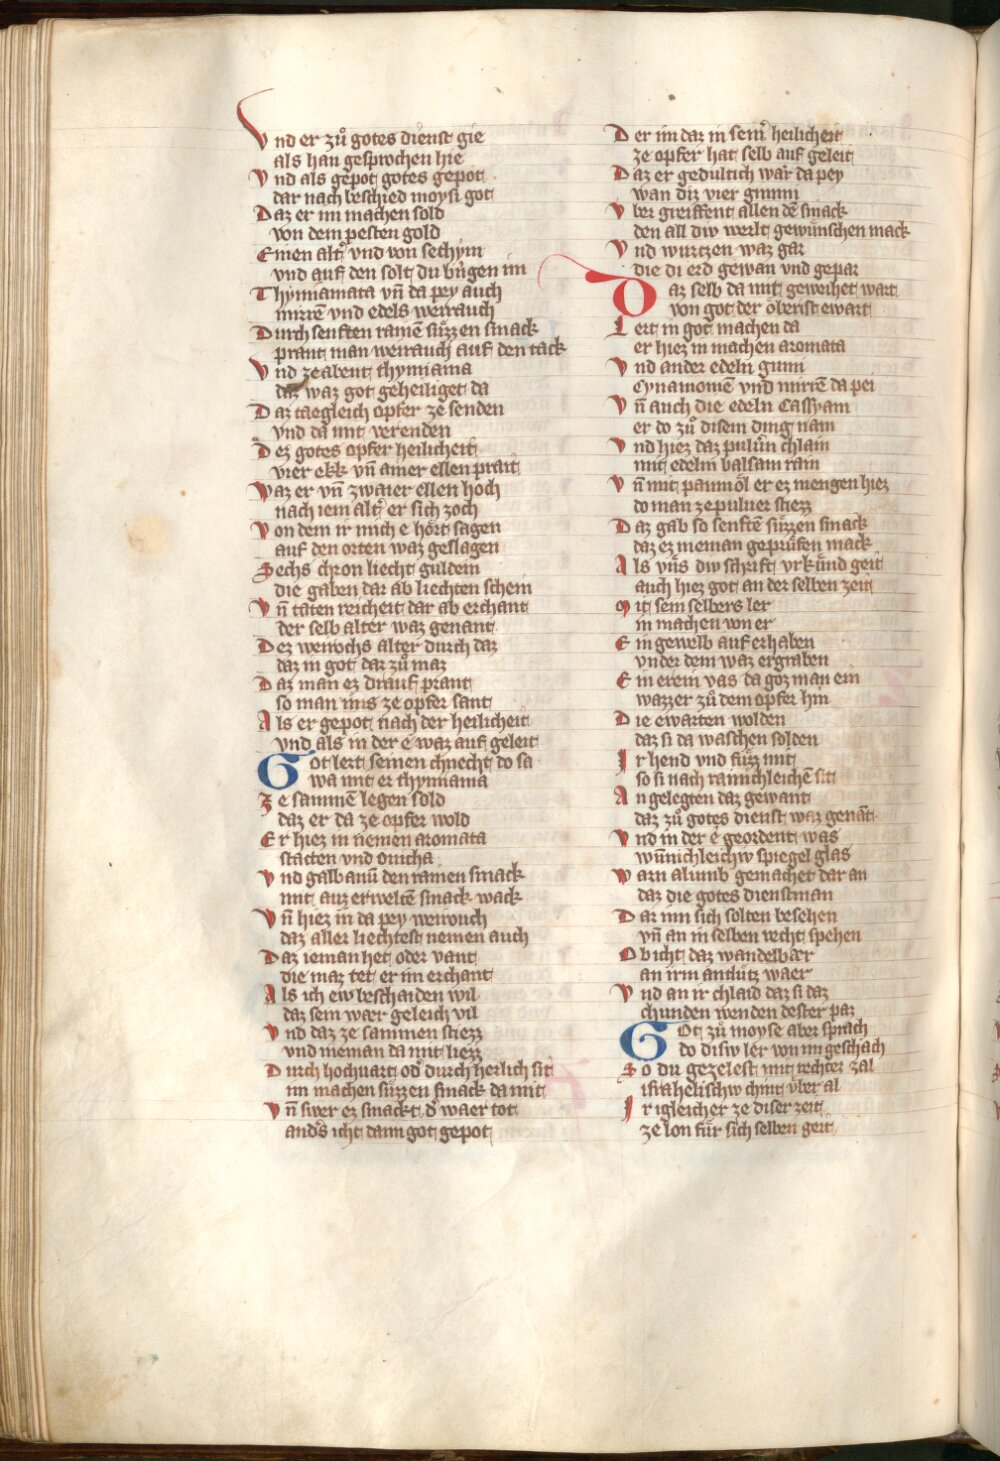 Vnd er zuͦ gotes dienst gie
als han gesprochen hie
Vnd als gepot gotes gepot
dar nach beschied moysi got
Daz er im machen sold
von dem pesten gold
Einen altʼ vnd von sethym
vnd auf den solt du bringen im
Thymiamata vn̄ da pey auch
mirrē vnd edels weirauch
Durch senften ramē suͤzzen smack
prant man weirauch auf den tack
Vnd ze abent thymiama
daz waz got geheiliget da
Daz taegleich opfer ze senden
vnd da mit verenden
Dez gotes opfer heilicheit
vier ekk vn̄ ainer ellen prait
Waz er vn̄ zwaier ellen hoch
nach iem altʼ er sich zoch
Von dem ir mich e hoͤrt sagen
auf den orten waz geslagen
Sechs chron liecht guldein
die gaben dar ab liechten schein
Vn̄ taten reicheit dar ab erchant
der selb alter waz genant
Dez weirochs alter durch daz
daz in got dar zuͦ maz
Daz man ez drauf prant
so man ims ze opfer sant
Als er gepot nach der heilicheit
vnd als in der e waz auf geleit
Got lert seinen chnecht do sa
wa mit er thymiama
Ze sammē legen sold
daz er da ze opfer wold
Er hiez in nemen aromata
stacten vnd onicha
Vnd galbanū den ramen smack
mit auz erweltē smack wack
Vn̄ hiez in da pey weirouch
daz aller liechtest nemen auch
Daz ieman het oder vant
die maz tet er im erchant
Als ich ew bescheiden wil
daz sein waer geleich vil
Vnd daz ze sammen stiezz
vnd nieman da mit liezz
Durch hochuart odʼ durch herlich sit
im machen suͤzzen smack da mit
Vn̄ swer ez smackt dʼ waer tot
andʼs icht dann got gepot
Der im daz in seinʼ heilicheit
ze opfer hat selb auf geleit
Daz er gedultich war da pey
wan diz vier gummi
Vber greiffent allen dē smack
den all diw werlt gewuͤnschen mack
Vnd wurtzen waz gar
die di erd gewan vnd gepar
Daz selb da mit geweihet wart
von got der oͤberist ewart
Lert in got machen da
er hiez in machen aromata
Vnd ander edeln gumi
Cynamomē vnd mirrē da pei
Vn̄ auch die edeln Cassyam
er do zuͦ disem ding nam
Vnd hiez daz puluͤn chlain
mit edelm balsam rain
Vn̄ mit paumoͤl er ez mengen hiez
do man ze puluer stiezz
Daz gab so senftē suͤzzen smack
daz ez nieman gepruͤfen mack
Als vns diw schrift vrkuͤnd geit
auch hiez got an der selben zeit
Mit sein selbers ler
in machen von er
Ein gewelb auf erhaben
vnder dem waz ergraben
Ein erein vas da goz man ein
wazzer zuͦ dem opfer hin
Die ewarten wolden
daz si da waschen solden
Ir hend vnd fuͤzz mit
so si nach rainichleichē sit
An gelegten daz gewant
daz zuͦ gotes dienst waz genāt
Vnd in der e geordent was
wūnichleichiw spiegel glas
Warn alumb gemachet dar an
daz die gotes dienstman
Dar inn sich solten besehen
vn̄ an in selben recht spehen
Ob icht daz wandelbaer
an irm antluͤtz waer
Vnd an ir chlaid daz si daz
chunden wenden dester paz
Got zuͦ moyse aber sprach
do disiw ler von im geschach
So du gezelest mit rechter zal
israhelischiw chint vͤber al
Ir igleicher ze diser zeit
ze lon fuͤr sich selben geit